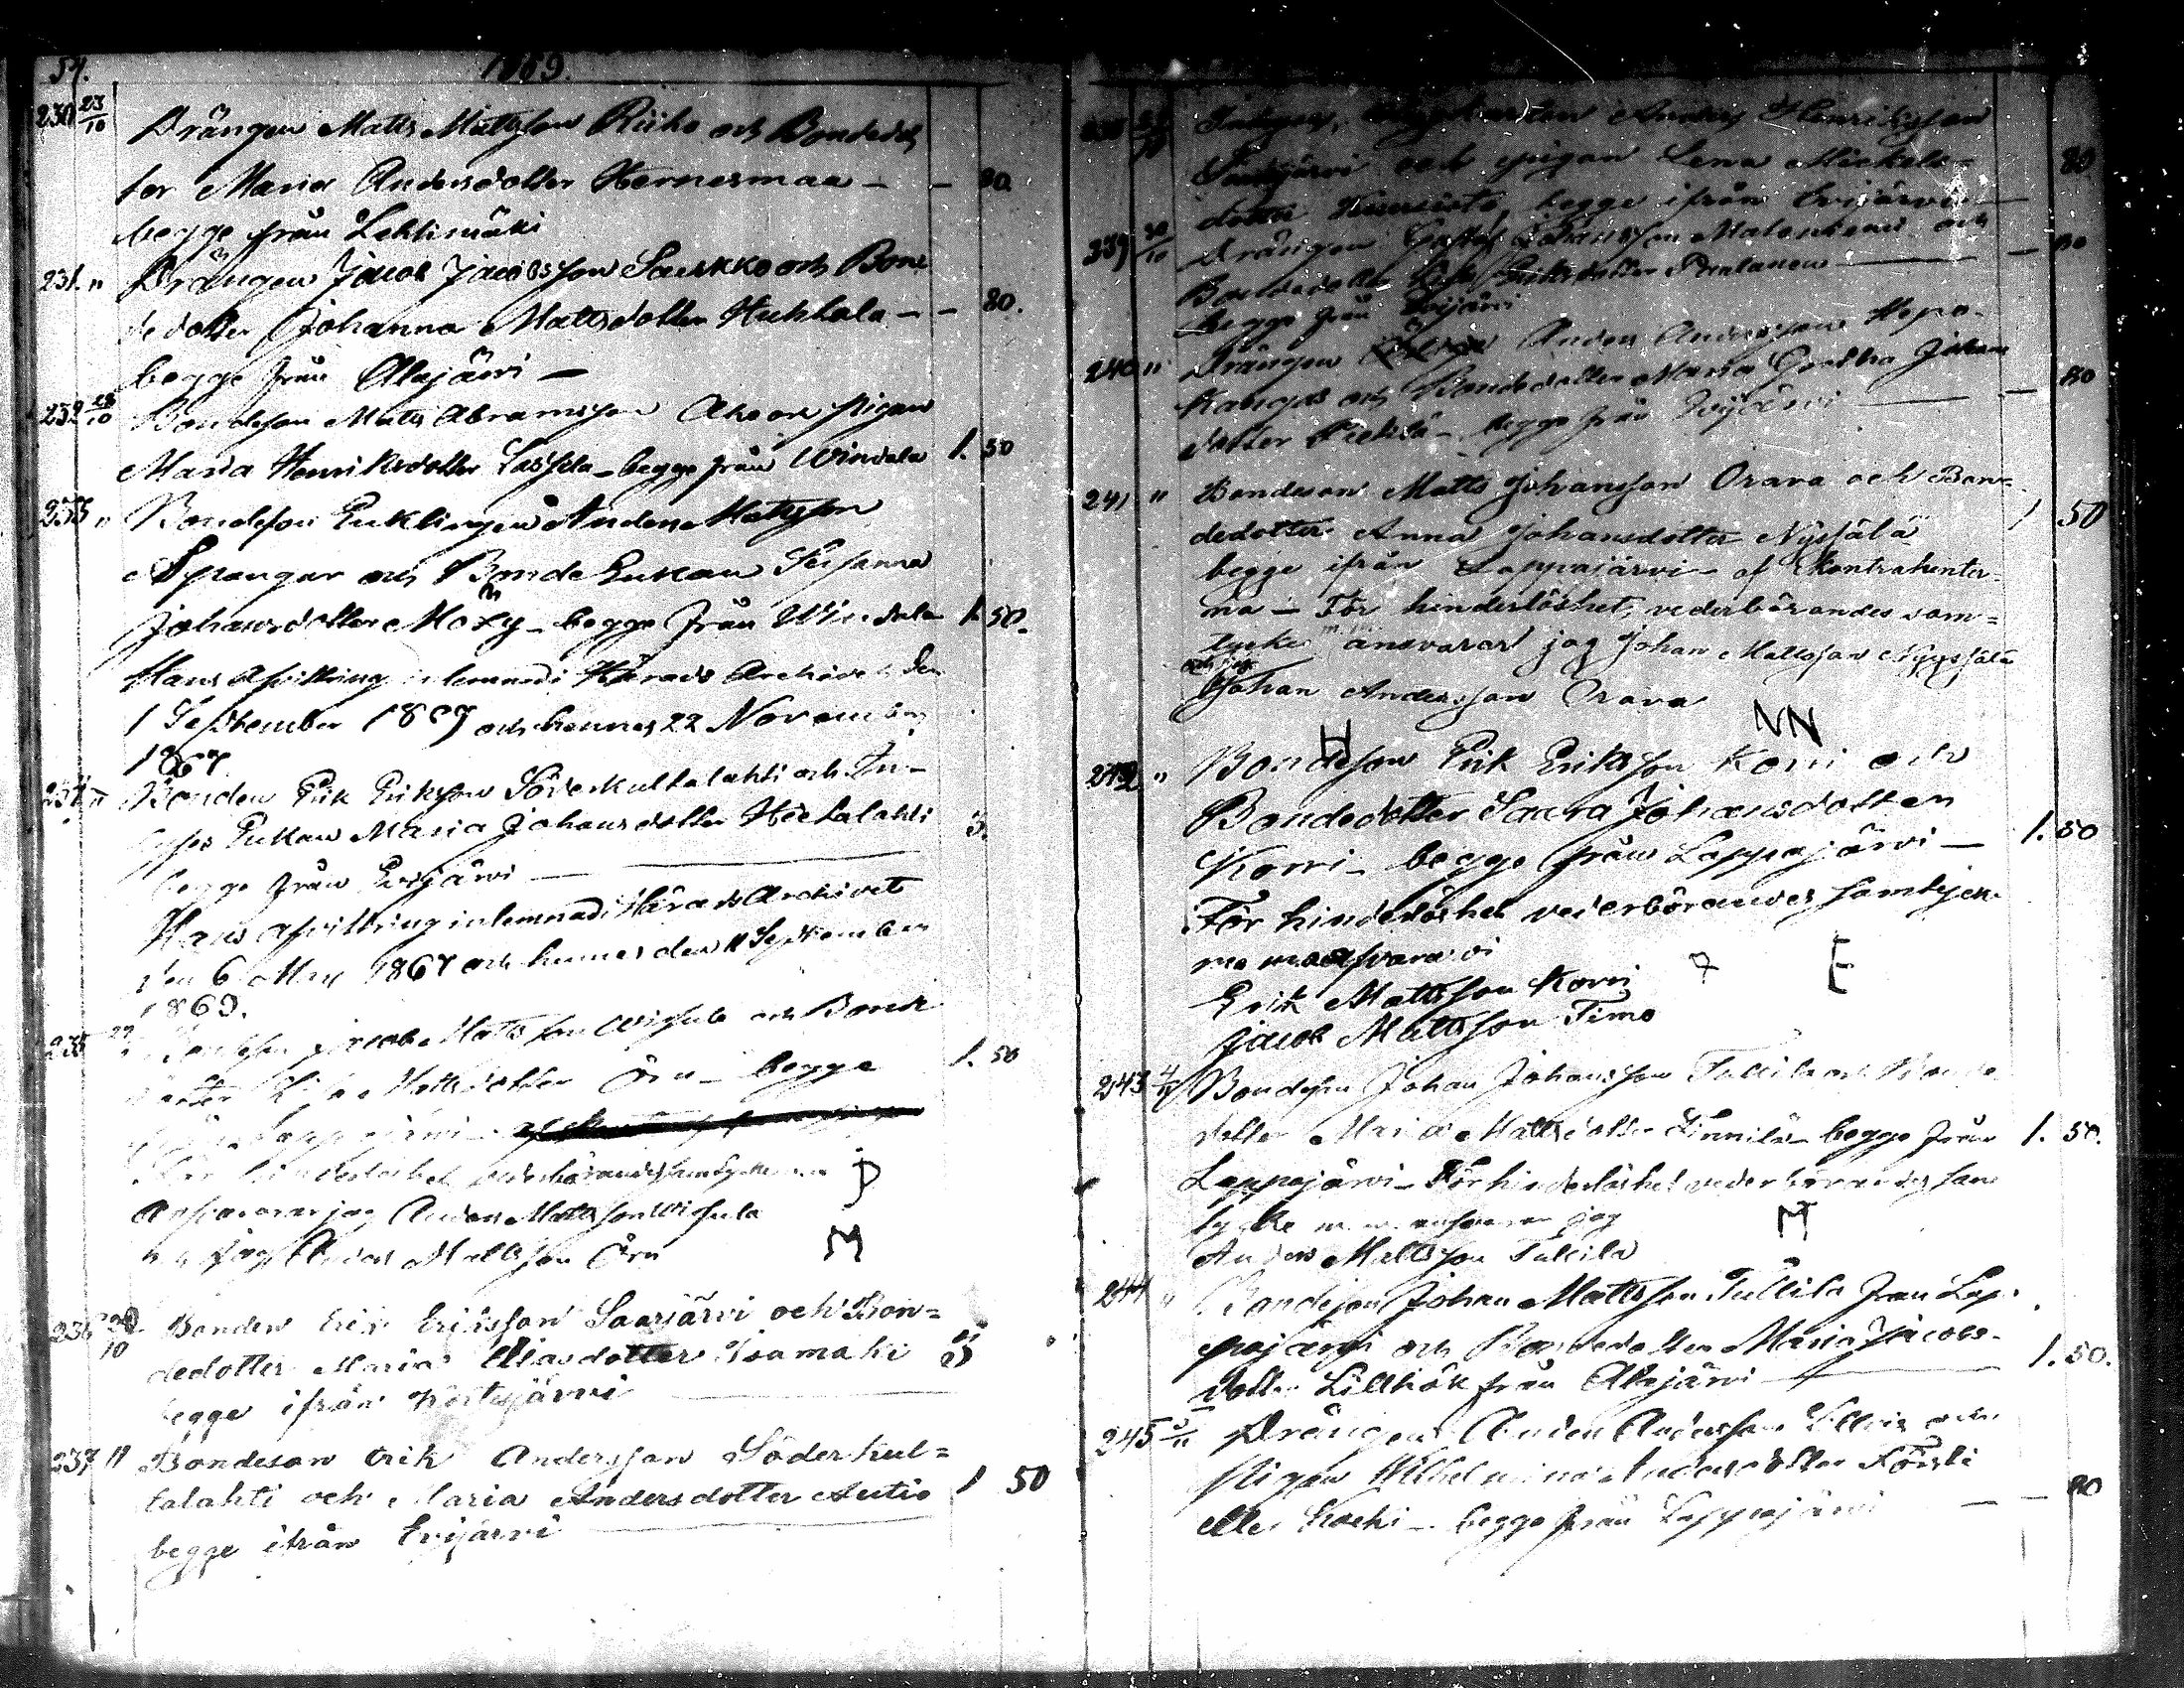 54.
1869.
230 23/10 Drängen Matts Mattsson Riiho och Bondedot
ter Maria Andersdotter Hernesmaa — — 80.
begge från Lehtimäki
231. " Drängen Jacob Jacobsson Saukko och Bon
dedotter Johanna Mattsdotter Huhtala — — 80.
begge från Alajärvi —
232 /10 Bondeson Matts Abramsson Aho och pigan
Maria Henriksdotter Lassila — begge från Windala 1. 50
233 " Bondeson Enklingen Anders Mattsson
Spangar och Bonde Enkan Susanna
Johansdotter Moxy — begge från Windala 1. 50.
Hans afvittring inlemnad i Härads Archivet den
1 September 1867 och hennes 22 November
1867
234 " Bonden Erik Eriksson Söderkultalahti och In-
hyses Enkan Maria Johansdotter Hietalahti 3.
begge från Evijärvi —
Hans afvittring inlemnad i Härads Archivet
den 6 May 1867 och hennes den 11 September
1869.
235 Bondeson Jacob Mattsson Wisula och Bonde
dotter Mattsdotter Öru — begge 1. 50
från Lappajärvi —
För hinderlöshet vederbörandes samtycke m m
ansvarar jag Anders Mattsson Wisula
och jag Mattsson Öru
D
M
236 /10 Bonden Erik Eriksson Saarjärvi och Bon=
dedotter Maria Eliasdotter Isomäki 3
begge ifrån Kortesjärvi
237 " Bondeson Erik Andersson Söderkul=
talahti och Maria Andersdotter Autio 1 50
begge ifrån Evijärvi
238 /10 Anders Henriksson
och pigan Lena Michels= 80
dotter begge ifrån Evijärvi
239 30/10 Drängen Gustaf Johansson och
Bondedotter Eriksdotter — 80
begge från Evijärvi
240 " Drängen Anders Andersson Hepo-
kangas och Bondedotter Maria Gretha Johans
dotter — begge från Evijärvi — 80
241 " Bondeson Matts Johansson Orava och Bon=
dedotter Anna Johansdotter Nyssälä 1 50
begge ifrån Lappajärvi — af Kontrahenter=
na — För hinderlöshet, vederbörandes sam=
tycke m.m. ansvarar jag Johan Mattsson Nyyssälä
och jag
Johan Andersson Orava
H
NN
242 " Bondeson Erik Eriksson Korri och
Bondedotter Saara Johansdotter
Korri — begge från Lappajärvi — 1. 50
För hinderlöshet vederbörandes samtycke
m m ansvara vi
Erik Mattsson Korri
7
E
Jacob Mattsson Timo
243 4/11 Bondeson Johan Johansson Tallila och Bonde
dotter Maria Mattsdotter Finnilä — begge från 1. 50.
Lappajärvi — För hinderlöshet vederbörandes sam
tycke m. m. ansvarar jag
M
Anders Mattsson Tallila
244 " Bondeson Johan Mattsson Tallila från Lap-
pajärvi och Bondedotter Maria Jacobs-
dotter Lillhök från Alajärvi — 1. 50.
245 5/11 Drängen Anders Andersson och
Pigan Wilhelmina Andersdotter Försti
eller Koski — begge från Lappajärvi — — 80